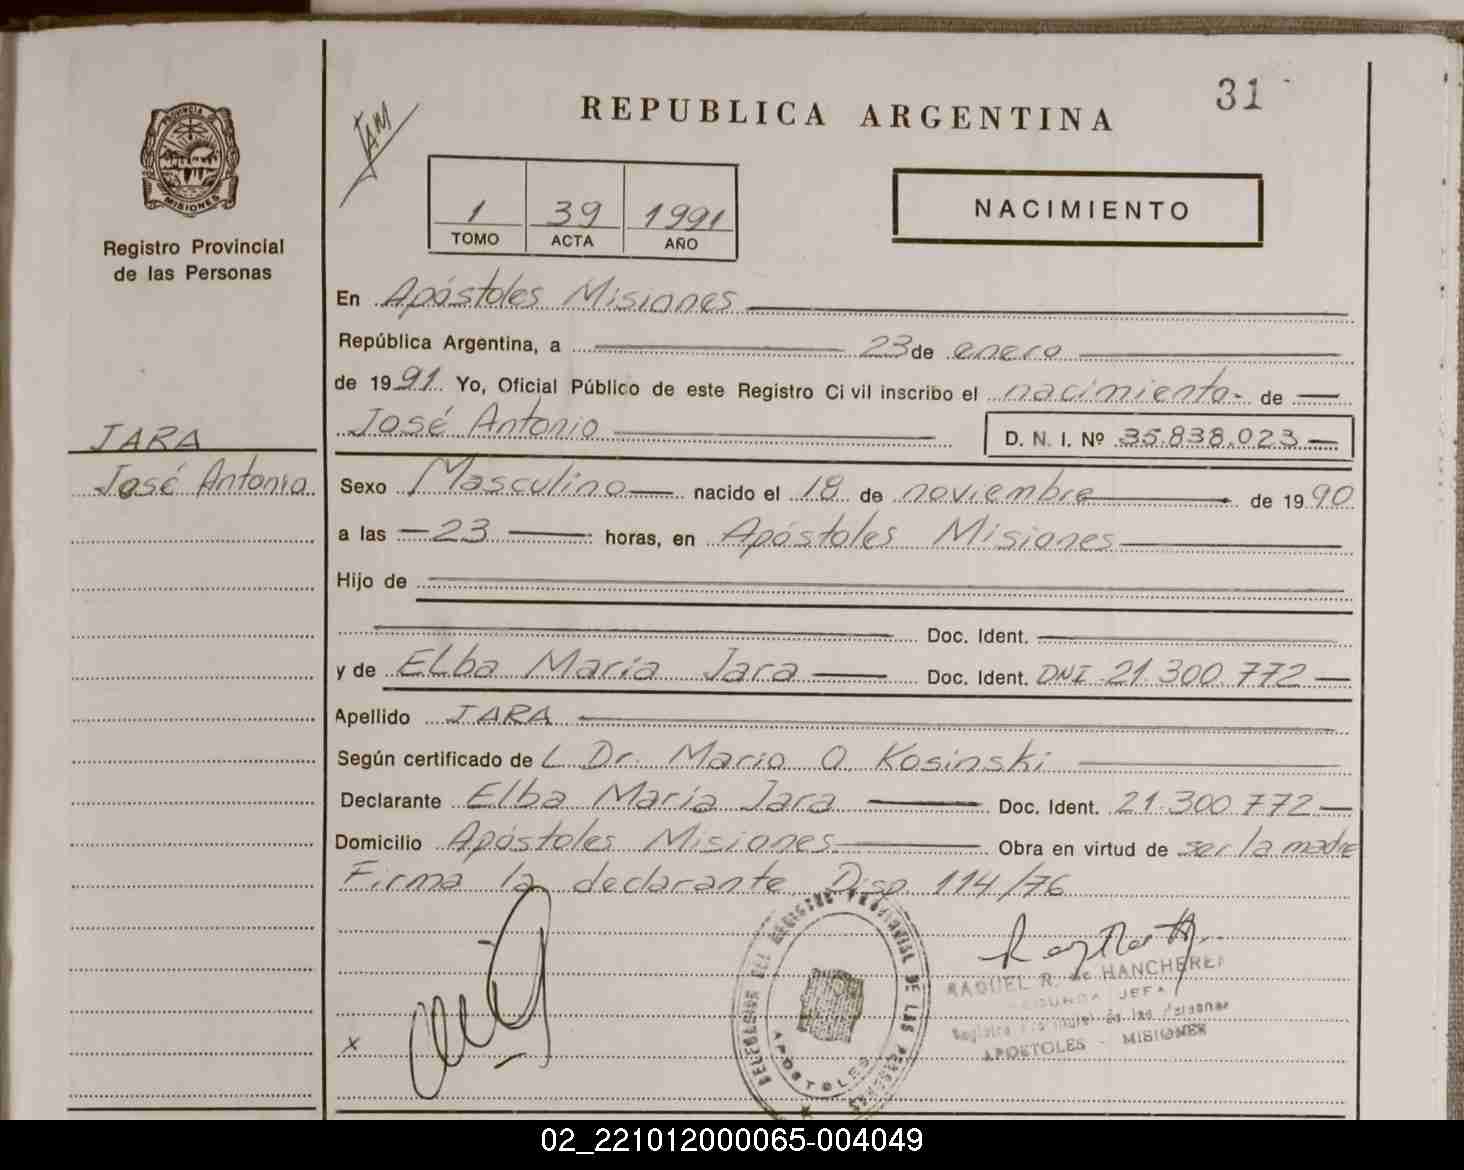 31
REPUBLICA ARGENTINA
JAM
PROVINCIA DE
MISIONES
Registro Provincial
de las Personas
1 39 1991
TOMO ACTA AÑO
NACIMIENTO
En Apóstoles Misiones
República Argentina, a 23 de enero
de 1991. Yo, Oficial Público de este Registro Civil inscribo el nacimiento de
José Antonio D. N. I. Nº 35.838.023
JARA
José Antonio
Sexo Masculino nacido el 18 de noviembre de 1990
a las 23 horas, en Apóstoles Misiones
Hijo de
Doc. Ident.
y de Elba María Jara Doc. Ident. DNI 21.300.772
Apellido JARA
Según certificado de L Dr. Mario O. Kosinski
Declarante Elba María Jara Doc. Ident. 21.300.772
Domicilio Apóstoles Misiones Obra en virtud de ser la madre
Firma la declarante. Disp. 114/76
DEL REGISTRO PROVINCIAL DE LAS PERSONAS
APOSTOLES
RAQUEL R. de
SEGUNDA JEFA
Registro Provincial de las Personas
APOSTOLES - MISIONES
x
02_221012000065-004049